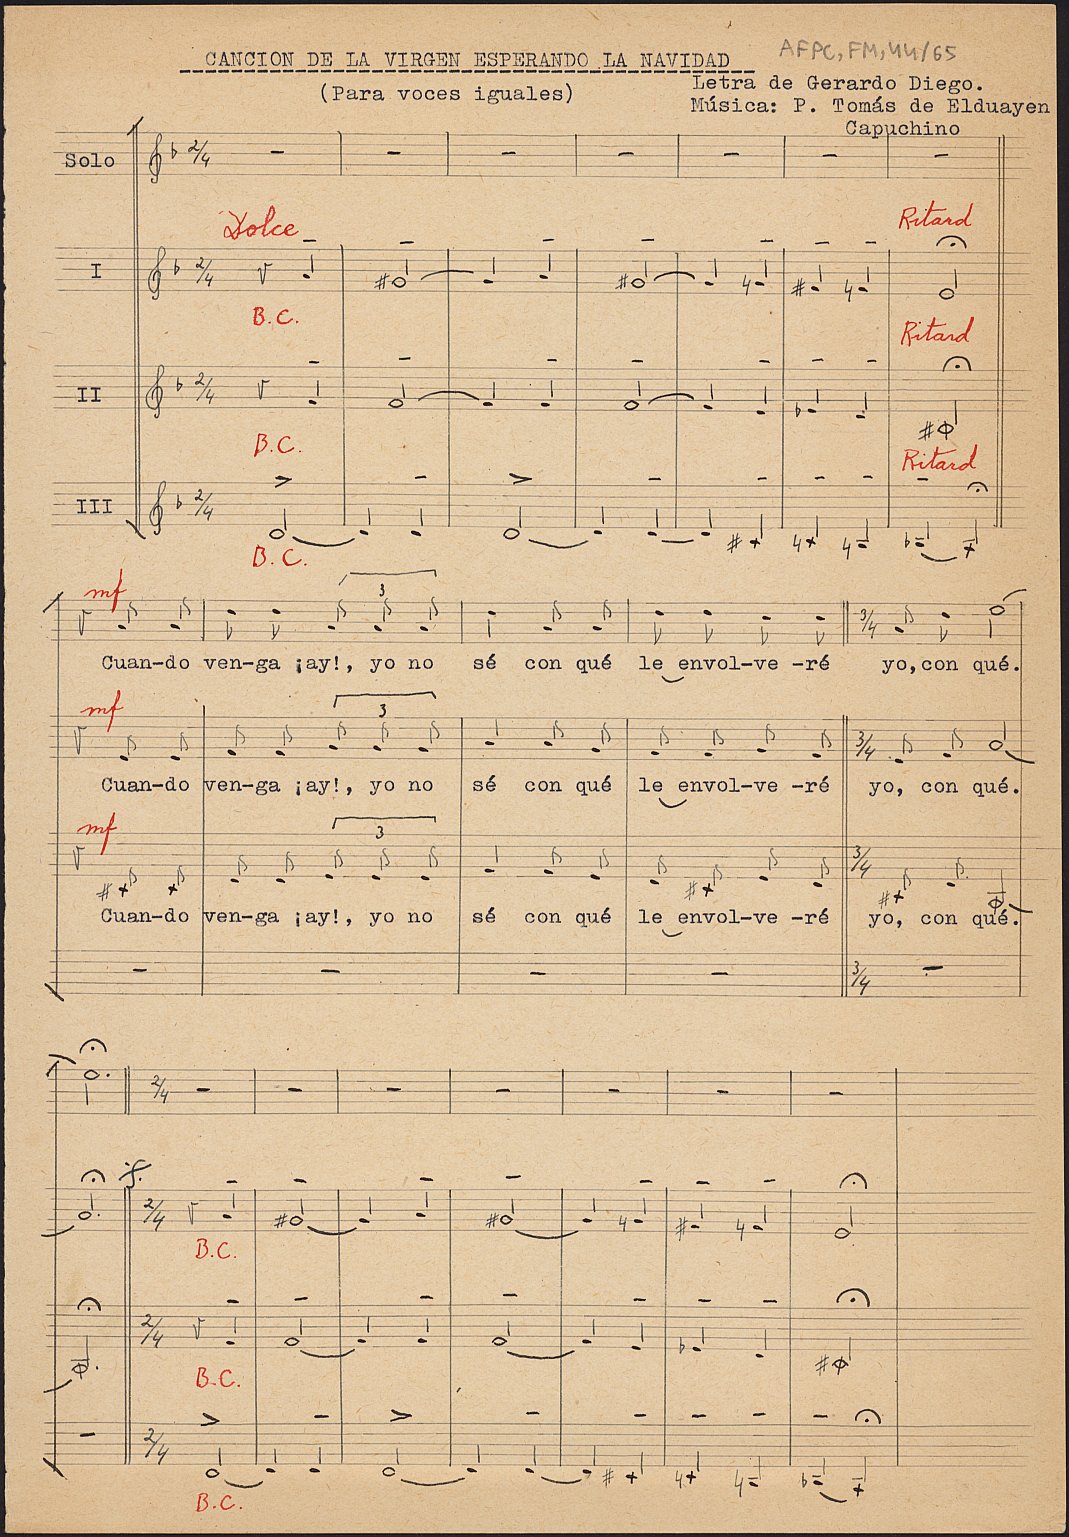 AFPC, FM, 44/65
CANCION DE LA VIRGEN ESPERANDO LA NAVIDAD
(Para voces iguales)
Letra de Gerardo Diego.
Música: P. Tomás de Elduayen
Capuchino
Solo 2/4
Dolce Ritard
I 2/4
B.C.
Ritard
II 2/4
B.C.
Ritard
III 2/4
B.C.
mf 3
3/4
Cuan-do ven-ga ¡ay!, yo no sé con qué le envol-ve -ré yo,con qué.
mf 3
3/4
Cuan-do ven-ga ¡ay!, yo no sé con qué le envol-ve -ré yo, con qué.
mf 3
3/4
Cuan-do ven-ga ¡ay!, yo no sé con qué le envol-ve -ré yo, con qué.
3/4
2/4
2/4
B.C.
2/4
B.C.
2/4
B.C.